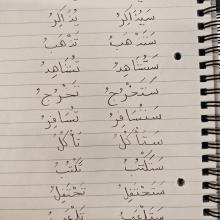 سَيُذَاكِرُ يُذَاكِرُ
سَتَذْهَبُ تَذْهَبُ
سَتُشَاهِدُ تُشَاهِدُ
سَتَخْرُجُ تَخْرُجُ
سَتُسَافِرُ تُسَافِرُ
سَتَأْكُلُ تَأْكُلُ
سَتَكْتُبُ تَكْتُبُ
سَتَحْتَفِلُ تَحْتَفِلُ
سَتَلْعَبُ تَلْعَبُ